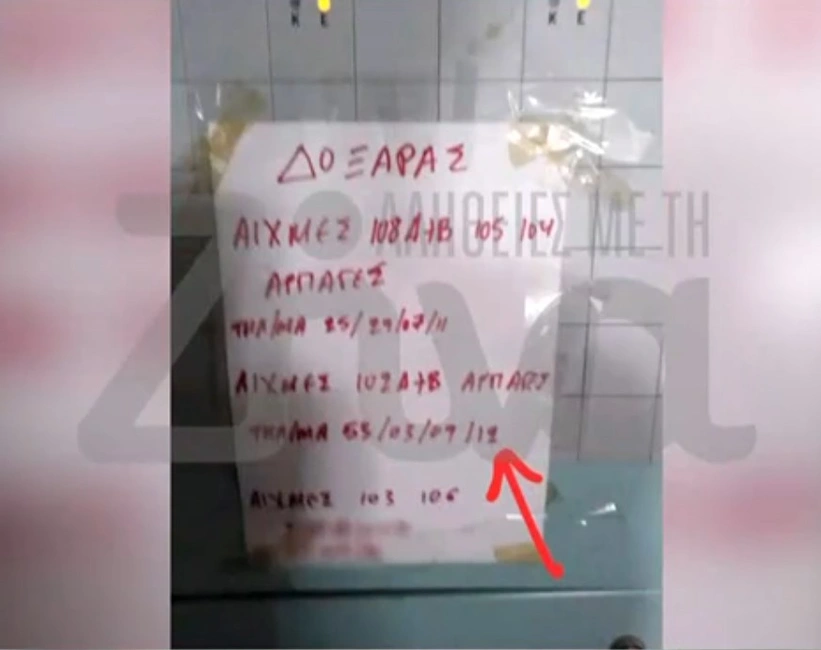 Κ Ε Κ Ε
ΔΟΞΑΡΑΣ
ΑΙΧΜΕΣ 108Α+Β 105 104
ΑΡΠΑΓΕΣ
ΤΗΛ/ΜΑ 25/29/07/11
ΑΙΧΜΕΣ 102Α+Β ΑΡΠΑΓΕΣ
ΤΗΛ/ΜΑ 55/03/09/12
ΑΙΧΜΕΣ 103 106
ΑΛΗΘΕΙΕΣ ΜΕ ΤΗ
Ζήνα